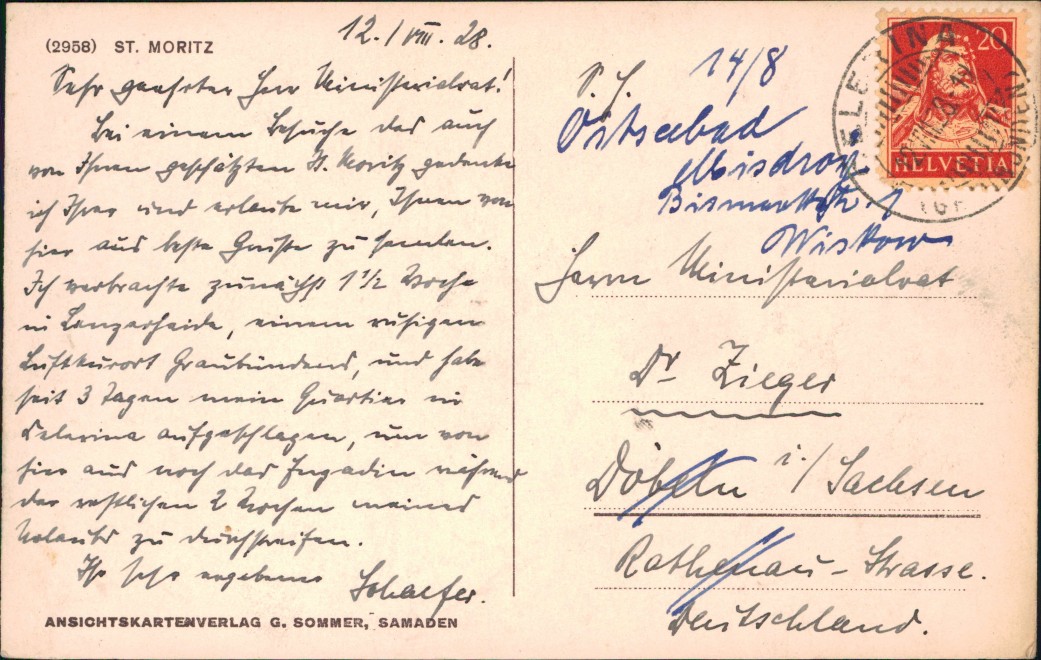 (2958) ST. MORITZ
12./VIII. 28.
Sehr geehrter Herr Ministerialrat!
Bei einem Besuche des auch
von Ihnen geschätzten St. Moritz gedenke
ich Ihrer und erlaube mir, Ihnen von
hier aus beste Grüße zu senden.
Ich verbrachte zunächst 1 1/2 Woche
in Lenzerheide, einem ruhigen
Luftkurort Graubündens, und habe
seit 3 Tagen mein Quartier in
Celerina aufgeschlagen, um von
hier aus noch das Engadin während
der restlichen 2 Wochen meines
Urlaubs zu durchstreifen.
Ihr sehr ergebener
Schaefer.
ANSICHTSKARTENVERLAG G. SOMMER, SAMADEN
14/8
Ostseebad
Misdroy
Bismarckstr. 1
Wiskow
Herrn Ministerialrat
Dr Zieger
Döbeln i./Sachsen
Rathenau-Strasse.
Deutschland.
20
HELVETIA
CELERINA